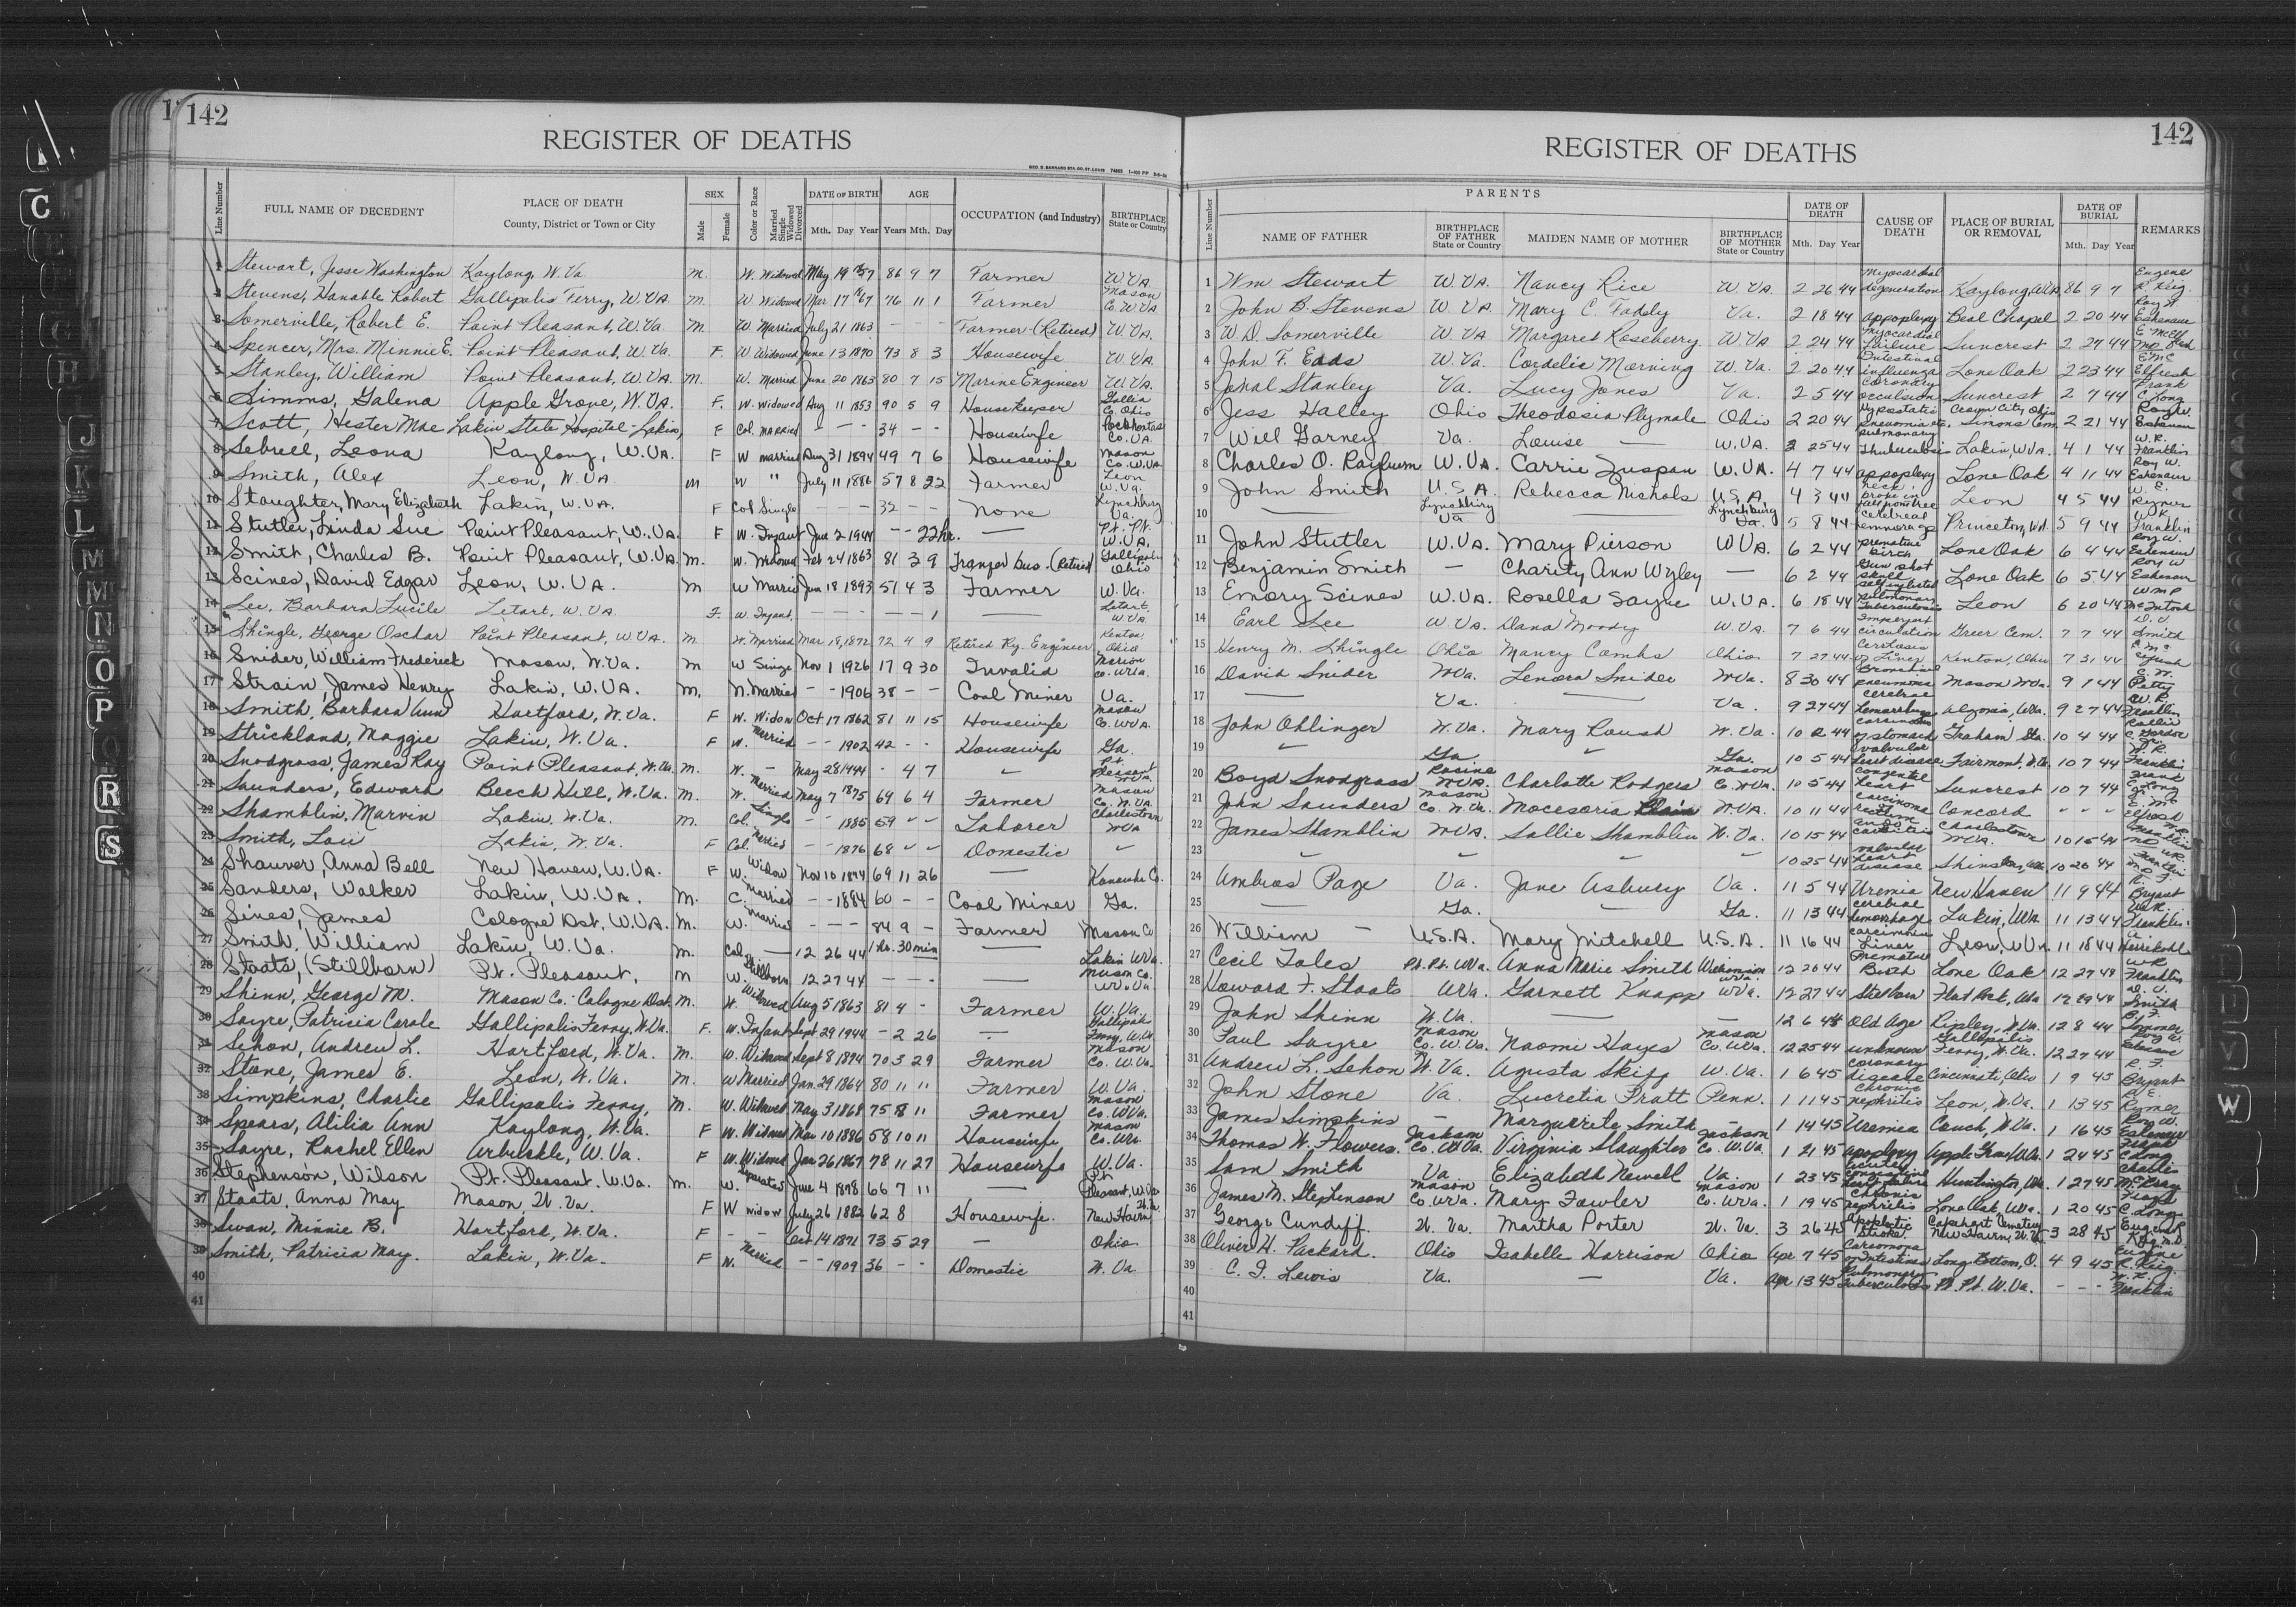 142
REGISTER OF DEATHS
Line Number
FULL NAME OF DECEDENT
PLACE OF DEATH
County, District or Town or City
SEX
Male
Female
Color or Race
Married Single Widowed Divorced
DATE OF BIRTH
Mth. Day Year
AGE
Years Mth. Day
OCCUPATION (and Industry)
BIRTHPLACE
State or Country
1 Stewart, Jesse Washington Kaylong, W.Va. M. W. Widowed May 19 1857 86 9 7 Farmer W.VA.
2 Stevens, Hanable Robert Gallipolis Ferry, W.VA. M. W Widowed Mar 17 1867 76 11 1 Farmer Mason Co. W.VA
3 Somerville, Robert E. Point Pleasant, W.Va. M. W. Married July 21 1863 - - - Farmer (Retired) W.VA.
4 Spencer, Mrs. Minnie E. Point Pleasant, W.Va. F. W Widowed June 13 1870 73 8 3 Housewife W.VA.
5 Stanley, William Point Pleasant, W.VA. M. W. Married June 20 1863 80 7 15 Marine Engineer W.VA.
6 Simms, Galena Apple Grove, W.VA. F. W. Widowed Aug 11 1853 90 5 9 Housekeeper Gallia Co. Ohio
7 Scott, Hester Mae Lakin State Hospital-Lakin, F Col. Married - - - 34 - - Housewife Pocahontas Co. VA.
8 Sebrell, Leona Kaylong, W.VA. F W married Aug 31 1894 49 7 6 Housewife Mason Co. W.VA.
9 Smith, Alex Leon, W.VA. M W " July 11 1886 57 8 22 Farmer Leon W.Va.
10 Staughter, Mary Elizabeth Lakin, W.VA. F Col Single - - - 32 - - None Lynchburg Va.
11 Stutler, Linda Sue Point Pleasant, W.VA. F W. Infant Jun 2 1944 - - 22hr. — Pt. Pt. W.VA.
12 Smith, Charles B. Point Pleasant, W.VA. M. W. Widowed Feb 24 1863 81 3 9 Tranfer bus. (Retired) Gallipolis Ohio
13 Scines, David Edgar Leon, W.VA. M W Married Jan 18 1893 51 4 3 Farmer W.Va.
14 Lee, Barbara Lucile Letart, W.VA. F. W Infant. - - - - - 1 Letart W.VA.
15 Shingle, George Oschar Point Pleasant, W.VA. M. W. Married Mar 18, 1872 72 4 9 Retired Ry. Engineer Kenton Ohio
16 Snider, William Frederick Mason, W.Va. M W Single Nov 1 1926 17 9 30 Invalid Marion Co. W.Va.
17 Strain, James Henry Lakin, W.VA. M. N. Married - - 1906 38 - - Coal Miner Va.
18 Smith, Barbara Ann Hartford, W.Va. F W. Widow Oct 17 1862 81 11 15 Housewife Mason Co. W.VA.
19 Strickland, Maggie Lakin, W.Va. F N. Married - - 1902 42 - - Housewife Ga.
20 Snodgrass, James Ray Point Pleasant, W.Va. M. W. - May 28 1944 - 4 7 Pt. Pleasant W.Va.
21 Saunders, Edward Beech Hill, W.Va. M. W. Married May 7 1875 69 6 4 Farmer Mason Co. W.VA.
22 Shamblin, Marvin Lakin, W.Va. M. Col. Single - - 1885 59 Laborer Charlestown W.VA
23 Smith, Loui Lakin, W.Va. F Col. Married - - 1876 68 Domestic
24 Shauver, Anna Bell New Haven, W.VA. F W. Widow Nov 10 1874 69 11 26 — Kanawha Co.
25 Sanders, Walker Lakin, W.VA. M. C. Married - - 1884 60 - - Coal Miner Ga.
26 Sines, James Cologne Dst, W.VA. M. W. Married - - - 84 9 - Farmer Mason Co
27 Smith, William Lakin, W.Va. M. Col — 12 26 44 1 hr. 30 min — Lakin W.Va.
28 Staats, (Stillborn) Pt. Pleasant, M W. Stillborn 12 27 44 - - - — Mason Co. W.Va.
29 Shinn, George M. Mason Co. Cologne Dist. M. W. Widowed Aug 5 1863 81 4 - Farmer W.Va.
30 Sayre, Patricia Carole Gallipolis Ferry, W.Va. F. W. Infant Sept 29 1944 - 2 26 — Gallipolis Ferry, W.Va.
31 Sehon, Andrew L. Hartford, W.Va. M. W. Widowed Sept 8 1874 70 3 29 Farmer Mason Co. W.Va.
32 Stone, James E. Leon, W.Va. M. W Married Jan. 29 1864 80 11 11 Farmer W.Va.
33 Simpkins, Charlie Gallipolis Ferry, M. W. Widowed May 3 1869 75 8 11 Farmer Mason Co. W.Va.
34 Spears, Atilia Ann Kaylong, W.Va. F W. Widowed Mar 10 1886 58 10 11 Housewife Mason Co. W.Va.
35 Sayre, Rachel Ellen Arbuckle, W.Va. F W. Widowed Jan 26 1867 78 11 27 Housewife W.Va.
36 Stephenson, Wilson Pt. Pleasant, W.Va. M. W. June 4 1878 66 7 11 — Pt. Pleasant, W.Va.
37 Staats, Anna May Mason, W.Va. F W widow July 26 1882 62 8 Housewife. New Haven W.Va.
38 Swan, Minnie B. Hartford, W.Va. F - - Oct 14 1871 73 5 29 — Ohio
39 Smith, Patricia May. Lakin, W.Va. F N. Married - - 1909 36 - - Domestic W.Va.
40
41
142
REGISTER OF DEATHS
Line Number
PARENTS
NAME OF FATHER
BIRTHPLACE OF FATHER
State or Country
MAIDEN NAME OF MOTHER
BIRTHPLACE OF MOTHER
State or Country
DATE OF DEATH
Mth. Day Year
CAUSE OF DEATH
PLACE OF BURIAL OR REMOVAL
DATE OF BURIAL
Mth. Day Year
REMARKS
1 Wm Stewart W.VA. Nancy Rice W.VA. 2 26 44 Myocardial degeneration Kaylong, W.VA. 86 9 7 Eugene R. King
2 John B. Stevens W.VA. Mary C. Fadely Va. 2 18 44 appoplexy Beal Chapel 2 20 44 Roy W. Eshenaur
3 W.D. Somerville W.VA Margaret Roseberry W.VA 2 24 44 Myocardial failure Suncrest 2 27 44
4 John F. Eads W.Va. Cordelia Morning W.Va. 2 20 44 Intestinal influenza Lone Oak 2 23 44 Elfresh
5 Jonal Stanley Va. Lucy Jones Va. 2 5 44 Coronary occulsion Suncrest 2 7 44 Frank C. Long
6 Jess Halley Ohio Theodosia Plymale Ohio 2 20 44 Hypostatic pneumonia etc. Crown City, Ohio Simons Cem. 2 21 44 Roy W. Eshenaur
7 Will Garney Va. Louise — W.VA. 3 25 44 pulmonary Thuberculosis Lakin, W.VA. 4 1 44 W.R. Franklin
8 Charles O. Rayburn W.VA. Carrie Zuspan W.VA. 4 7 44 appoplexy Lone Oak 4 11 44 Roy W. Eshenaur
9 John Smith U.S.A. Rebecca Nichols U.S.A. 4 3 44 neck broke in fall from tree Leon 4 5 44 W.E. Rymer
10 — Lynchburg Va — Lynchburg Va. 5 8 44 cerebral hemmorage Princeton, W.V. 5 9 44 W.R. Franklin
11 John Stutler W.VA. Mary Pierson W.VA. 6 2 44 premature birth Lone Oak 6 4 44 Roy W. Eshenaur
12 Benjamin Smith — Charity Ann Wyley — 6 2 44 Gun shot skull self inflicted Lone Oak 6 5 44 Roy W Eshenaur
13 Emory Scines W.VA. Rosella Sayre W.VA. 6 18 44 Pulmonary Tuberculosis Leon 6 20 44 W M P McIntosh
14 Earl Lee W.VA. Dana Moody W.VA. 7 6 44 Imperfect circulation Greer Cem. 7 7 44 Smith
15 Henry M. Shingle Ohio Mancy Combs Ohio 7 27 44 Cerrosis of Liver Kenton, Ohio 7 31 44
16 David Snider W.Va. Lenora Snider W.Va. 8 30 44 Bronchial pneumonia Mason W.Va. 9 1 44 Petty
17 — Va. — Va. 9 27 44 cerebral hemorrhage Algonia, W.Va. 9 27 44 W.R. Franklin
18 John Ohlinger W.Va. Mary Roush W.Va. 10 2 44 carcinoma of stomach Graham Sta. 10 4 44
19 Ga. Ga. 10 5 44 valvular heart disease Fairmont, W.Va. 10 7 44 W.R. Franklin
20 Boyd Snodgrass Racine W.VA. Charlotte Rodgers Mason Co. W.Va. 10 5 44 congenital heart Suncrest 10 7 44 Frank C. Long
21 John Saunders Mason Co. W.Va. Mocesoria W.VA. 10 11 44 carcinoma rectum Concord - - 44
22 James Shamblin W.VA. Sallie Shamblin W.Va. 10 15 44 Charlestown W.VA. 10 15 44 Franklin
23 10 25 44 valvular heart disease 10 26 44 Franklin
24 Ambros Page Va. Jane Asbury Va. 11 5 44 Uremia New Haven 11 9 44 Bryant
25 — Ga. — Ga. 11 13 44 cerebral hemorrhage Lakin, W.Va. 11 13 44 W.R. Franklin
26 William — U.S.A. Mary Mitchell U.S.A. 11 16 44 carcinoma Liver Leon, W.Va. 11 18 44
27 Cecil Toles Pt. Pt. W.Va. Anna Marie Smith Williamson W.Va. 12 26 44 Premature Birth Lone Oak 12 27 44 W.R. Franklin
28 Howard F. Staats W.Va. Garnett Knapp W.Va. 12 27 44 Stillborn Flat Rock, W.Va. 12 29 44 Smith
29 John Shinn W.Va. — 12 6 44 Old Age Ripley, W.Va. 12 8 44
30 Paul Sayre Mason Co. W.Va. Naomi Hayes Mason Co. W.Va. 12 25 44 unknown Gallipolis Ferry, W.Va. 12 27 44
31 Andrew L. Sehon W.Va. Agusta Skiff W.Va. 1 6 45 coronary disease Cincinnati, Ohio 1 9 45 Bryant
32 John Stone Va. Lucretia Pratt Penn. 1 11 45 Chronic nephritis Leon, W.Va. 1 13 45 Rymer
33 James Simpkins — Marguerite Smith — 1 14 45 Uremia Couch, W.Va. 1 16 45 Roy W. Eshenaur
34 Thomas W. Flowers Jackson Co. W.Va. Virginia Slaughter Jackson Co. W.Va. 1 21 45 apoplexy Apple Grove W.Va. 1 24 45 Frank C. Long
35 Sam Smith Va. Elizabeth Newell Va. 1 23 45 acute congestive heart failure Huntington, W.Va. 1 27 45 Charles
36 James M. Stephenson Mason Co. W.Va. Mary Fowler Mason Co. W.Va. 1 19 45 Chronic nephritis Lone Oak, W.Va. 1 20 45 Frank C. Long
37 George Cundiff W.Va. Martha Porter W.Va. 3 26 45 Apoplectic Stroke Capehart Cemetery New Haven, W.Va 3 28 45 Eugene R. King M.D.
38 Oliver H. Packard. Ohio Isabelle Harrison Ohio Apr 7 45 Carsomona of Intestines Long Bottom, O. 4 9 45 Eugene R. King
39 C. I. Lewis Va. — Va. Apr 13 45 Pulmonary Tuberculosis Pt. Pt. W.Va. - - - W.R. Franklin
40
41
C
E
G
H
J
K
L
M
N
O
P
Q
R
S
W